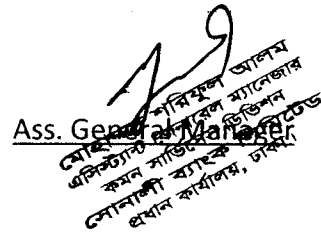 Ass. General Manager
মোহাম্মদ শরিফুল আলম
এসিস্ট্যান্ট জেনারেল ম্যানেজার
কমন সার্ভিসেস ডিভিশন
সোনালী ব্যাংক লিমিটেড
প্রধান কার্যালয়, ঢাকা।